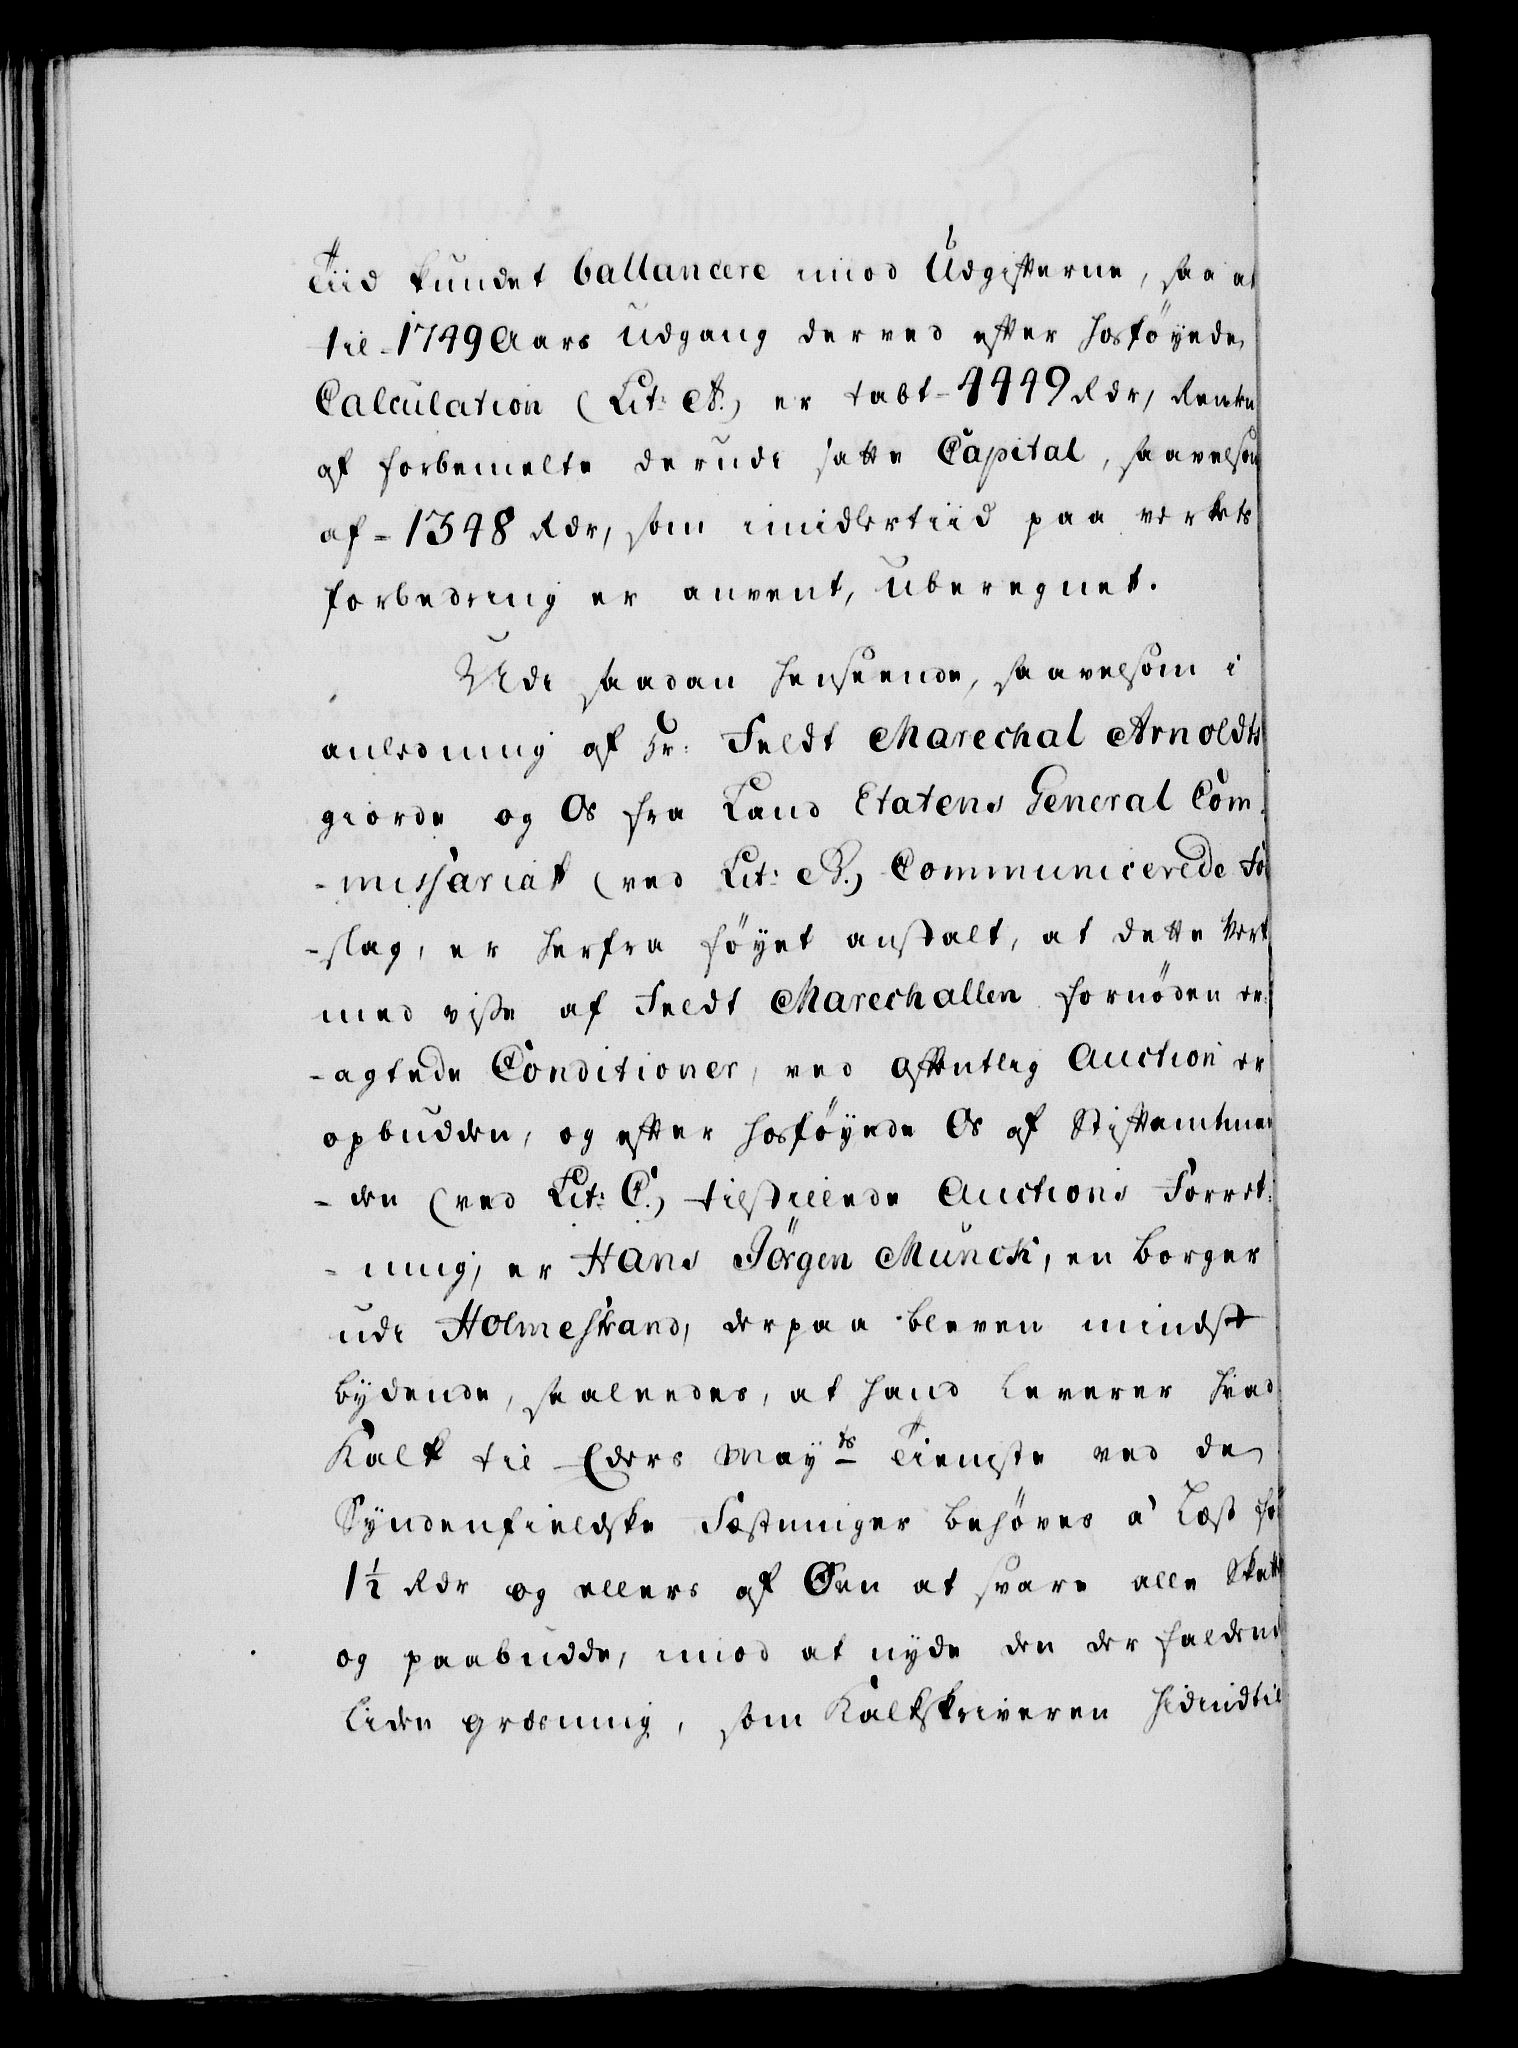 Tiid kundet ballancere imod Udgifterne, saa at
til 1749 Aars udgang derved efter hosföyede
Calculation (Lit: A.) er tabt 4449 Rdr, Renten
af forbemelte derudi satte Capital, saavelsom
af 1348 Rdr, som imidlertiid paa verkets
forbedring er anvent, uberegnet.
Udi saadan henseende, saavelsom i
anledning af Hr: Feldt Marechal Arnoldts
giorde og Os fra Land Etatens General Com-
-missariat (ved Lit: B.) Communicerede For
-slag, er herfra föyet anstalt, at dette Verk
med visse af Feldt Marechallen fornöden er-
-agtede Conditioner, ved offentlig Auction er
opbudden, og efter hosföyede Os af Stiftamtman
-den (ved Lit: C.) tilstillede Auctions Forret-
-ning, er Hans Jörgen Munck, en borger
udi Holmestrand, derpaa bleven mindst
bÿdende, saaledes, at hand leverer hvad
Kalk til Eders Maÿts Tieniste ved de
Sÿndenfieldske Fæstninger behöves à Læst for
1½ Rdr og ellers af Øen at svare alle Skatter
og paabudde, imod at nyde den der faldende
liden græsning, som Kalkskriveren hidindtil